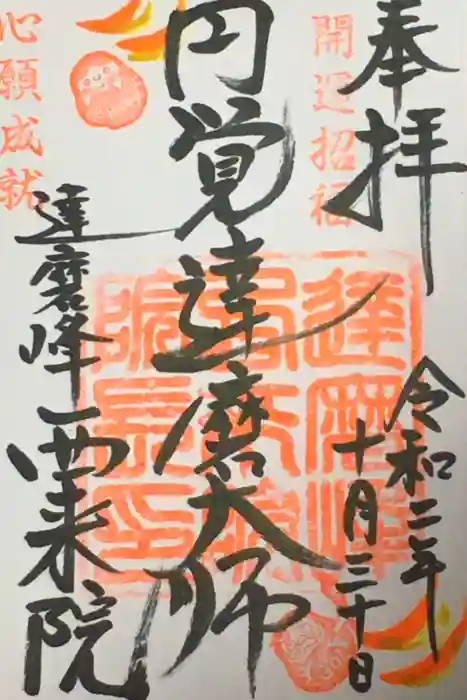 奉拝
開運招福
令和二年
十月三十日
円覚達磨大師
心願成就
達磨峰西来院